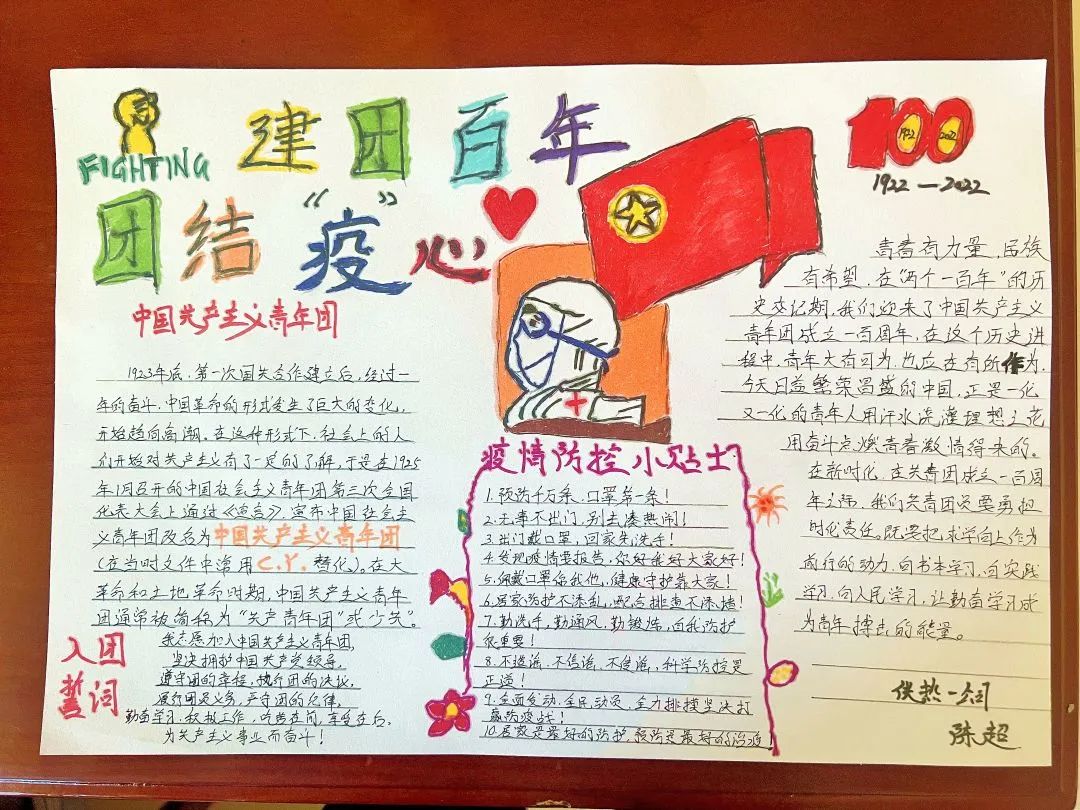 FIGHTING
建团百年
100
1922
2022
1922—2022
团结“疫”心
中国共产主义青年团
1923年底，第一次国共合作建立后，经过一
年的奋斗，中国革命的形式发生了巨大的变化，
开始趋向高潮。在这种形式下，社会上的人
们开始对共产主义有了一定的了解，于是在1925
年1月召开的中国社会主义青年团第三次全国
代表大会上通过《宣言》，宣布中国社会主
义青年团改名为中国共产主义青年团
(在当时文件中常用C.Y.替代)。在大
革命和土地革命时期，中国共产主义青年
团通常被简称为“共产青年团”或
入团
誓词
我志愿加入中国共产主义青年团，
坚决拥护中国共产党领导，
遵守团的章程，执行团的决议，
履行团员义务，严守团的纪律，
勤奋学习，积极工作，吃苦在前，享受在后，
为共产主义事业而奋斗！
疫情防控小贴士
1.预防千万条，口罩第一条！
2.无事不出门，别去凑热闹！
3.出门戴口罩，回家先洗手！
4.发现疫情要报告，你好我好大家好！
5.佩戴口罩你我他，健康守护靠大家！
6.居家防护不添乱，配合排查不添堵！
7.勤洗手，勤通风，勤锻炼，自我防护
很重要！
8.不造谣、不信谣、不传谣，科学防控是
正道！
9.全面发动，全民动员，全力排摸坚决打
赢防疫战！
10.居家是最好的防护，预防是最好的治疗
青春有力量，民族
有希望，在“两个一百年”的历
史交记期，我们迎来了中国共产主义
青年团成立一百周年，在这个历史进
程中，青年大有可为，也应在有所作为，
今天日益繁荣昌盛的中国，正是一代
又一代的青年人用汗水浇灌理想之花
用奋斗点燃青春激情得来的。
在新时代，在共青团成立一百周
年之际，我们共青团员要勇担
时代责任。既要把求学向上作为
前行的动力，向书本学习，向实践
学习，向人民学习，让勤奋学习成
为青年搏击的能量。
供热一公司
陈超